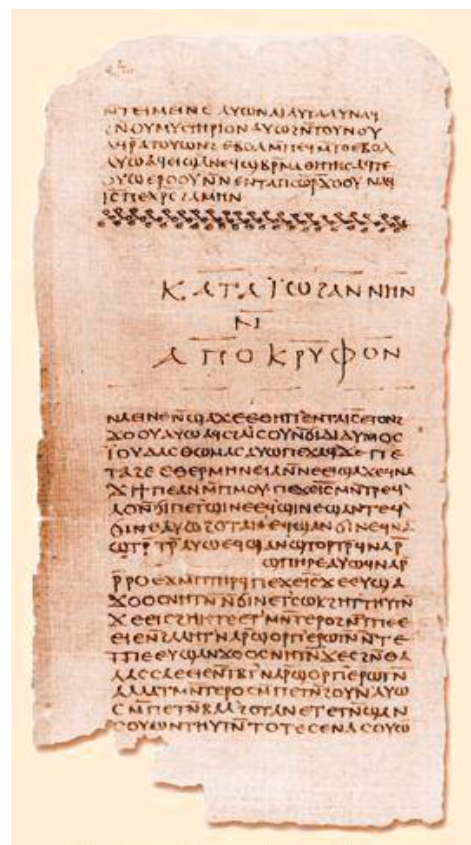 ⲛⲧⲉⲉⲓⲙⲉⲓⲛⲉ ⲁⲩⲱ ⲛⲁⲓ ⲁⲩⲧⲁⲁⲩ ⲛⲁϥ
ϩⲛ ⲟⲩⲙⲩⲥⲧⲏⲣⲓⲟⲛ ⲁⲩⲱ ϩⲛ ⲧⲟⲩⲛⲟⲩ
ⲁϥⲣ ⲁⲧⲟⲩⲱⲛϩ ⲉⲃⲟⲗ ⲙⲡⲉϥⲙⲧⲟ ⲉⲃⲟⲗ
ⲁⲩⲱ ⲁϥⲉⲓ ϣⲁ ⲛⲉϥϣⲃⲣⲙⲁⲑⲏⲧⲏⲥ ⲁϥⲧⲉ
ⲟⲩⲱ ⲉⲣⲟⲟⲩ ⲛⲛⲉⲛⲧⲁⲡⲥⲱⲣ ϫⲟⲟⲩ ⲛⲁϥ
ⲓ̅ⲥ̅ ⲡⲉⲭⲣ̅ⲥ̅ ϩⲁⲙⲏⲛ
ⲕⲁⲧⲁ ⲓ̈ⲱϩⲁⲛⲛⲏⲛ
ⲛ
ⲁⲡⲟⲕⲣⲩⲫⲟⲛ
ⲛⲁⲉⲓ ⲛⲉ ⲛ̅ϣⲁϫⲉ ⲉⲑⲏⲡ ⲉⲛⲧⲁ ⲓ̅ⲥ̅ ⲉⲧⲟⲛϩ
ϫⲟⲟⲩ ⲁⲩⲱ ⲁϥⲥϩⲁⲓⲥⲟⲩ ⲛ̅ϭⲓ ⲇⲓⲇⲩⲙⲟⲥ
ⲓ̈ⲟⲩⲇⲁⲥ ⲑⲱⲙⲁⲥ ⲁⲩⲱ ⲡⲉϫⲁϥ ϫⲉ ⲡⲉ
ⲧⲁϩⲉ ⲉⲑⲉⲣⲙⲏⲛⲉⲓⲁ ⲛ̅ⲛⲉⲉⲓϣⲁϫⲉ ϥⲛⲁ
ϫⲓ ϯⲡⲉ ⲁⲛ ⲙ̅ⲡⲙⲟⲩ ⲡⲉϫⲉ ⲓ̅ⲥ̅ ⲙⲛ̅ⲧⲣⲉϥ
ⲗⲟ ⲛ̅ϭⲓ ⲡⲉⲧϣⲓⲛⲉ ⲉϥϣⲓⲛⲉ ϣⲁⲛⲧⲉϥ
ϭⲓⲛⲉ ⲁⲩⲱ ϩⲟⲧⲁⲛ ⲉϥϣⲁⲛϭⲓⲛⲉ ϥⲛⲁ
ϣⲧⲣ̅ⲧⲣ̅ ⲁⲩⲱ ⲉϥϣⲁⲛϣⲧⲟⲣⲧⲣ̅ ϥⲛⲁⲣ̅
ϣⲡⲏⲣⲉ ⲁⲩⲱ ϥⲛⲁⲣ̅
ⲣ̅ⲣⲟ ⲉϫⲙ̅ ⲡⲧⲏⲣϥ ⲡⲉϫⲉ ⲓ̅ⲥ̅ ϫⲉ ⲉⲩϣⲁ
ϫⲟⲟⲥ ⲛⲏⲧⲛ̅ ⲛ̅ϭⲓ ⲛⲉⲧⲥⲱⲕ ϩⲏⲧ ⲧⲏⲩⲧⲛ̅
ϫⲉ ⲉⲓⲥϩⲏⲏⲧⲉ ⲉⲧⲙⲛ̅ⲧⲉⲣⲟ ϩⲛ̅ ⲧⲡⲉ ⲉ
ⲉⲓⲉ ⲛ̅ϩⲁⲗⲏⲧ ⲛⲁⲣ̅ ϣⲟⲣⲡ ⲉⲣⲱⲧⲛ̅ ⲛ̅ⲧⲉ
ⲧⲡⲉ ⲉⲩϣⲁⲛϫⲟⲟⲥ ⲛⲏⲧⲛ̅ ϫⲉ ⲥϩⲛ̅ ⲑⲁ
ⲗⲁⲥⲥⲁ ⲉⲉⲓⲉ ⲛ̅ⲧⲃⲧ ⲛⲁⲣ̅ ϣⲟⲣⲡ ⲉⲣⲱⲧⲛ̅
ⲁⲗⲗⲁ ⲧⲙⲛ̅ⲧⲉⲣⲟ ⲥⲙ̅ⲡⲉⲧⲛ̅ϩⲟⲩⲛ ⲁⲩⲱ
ⲥⲙ̅ⲡⲉⲧⲛ̅ⲃⲁⲗ ϩⲟⲧⲁⲛ ⲉⲧⲉⲧⲛ̅ϣⲁⲛ
ⲥⲟⲩⲱⲛ ⲧⲏⲩⲧⲛ̅ ⲧⲟⲧⲉ ⲥⲉⲛⲁⲥⲟⲩⲱ